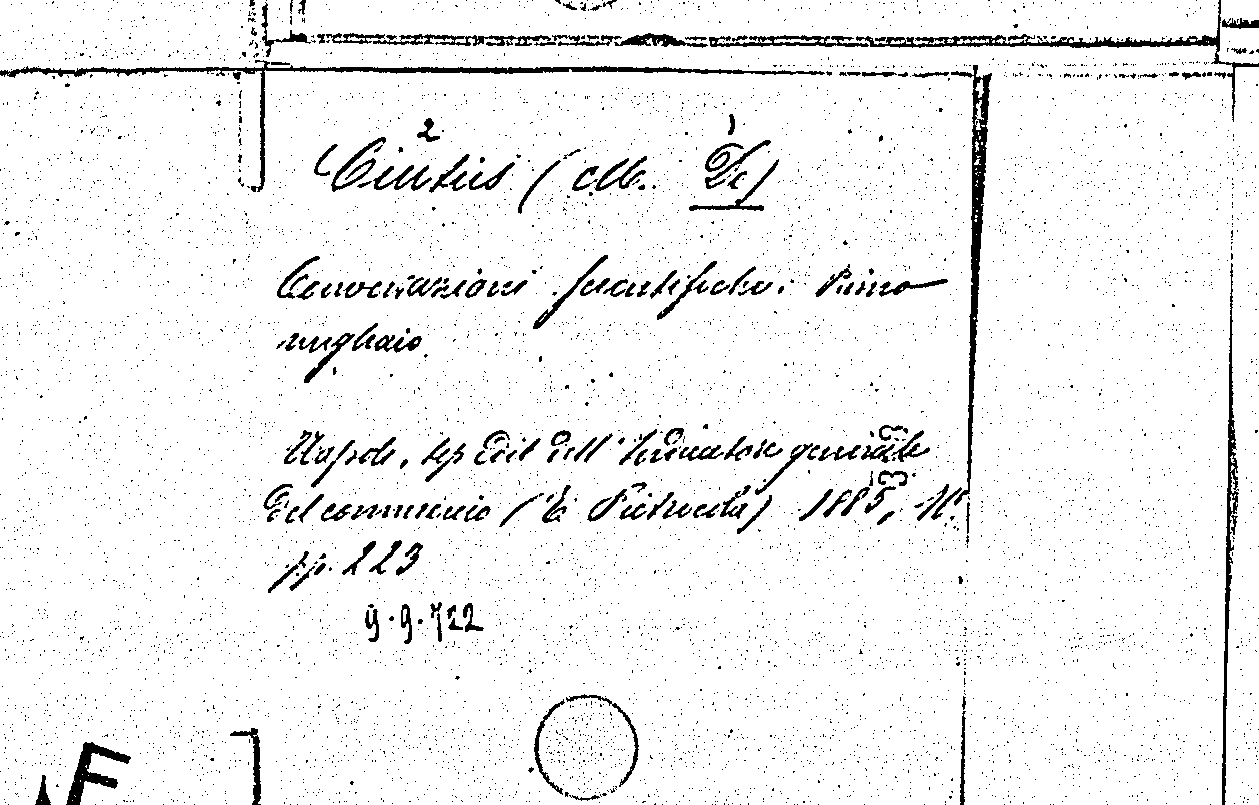 2 1
Ciutiis (M. De)
Conversazioni scientifiche. Primo
migliaio
Napoli, tip Edit dell'Indicatore generale
del commercio (E. Pietrocola) 1885, 16°
pp. 223
9.9.722
F